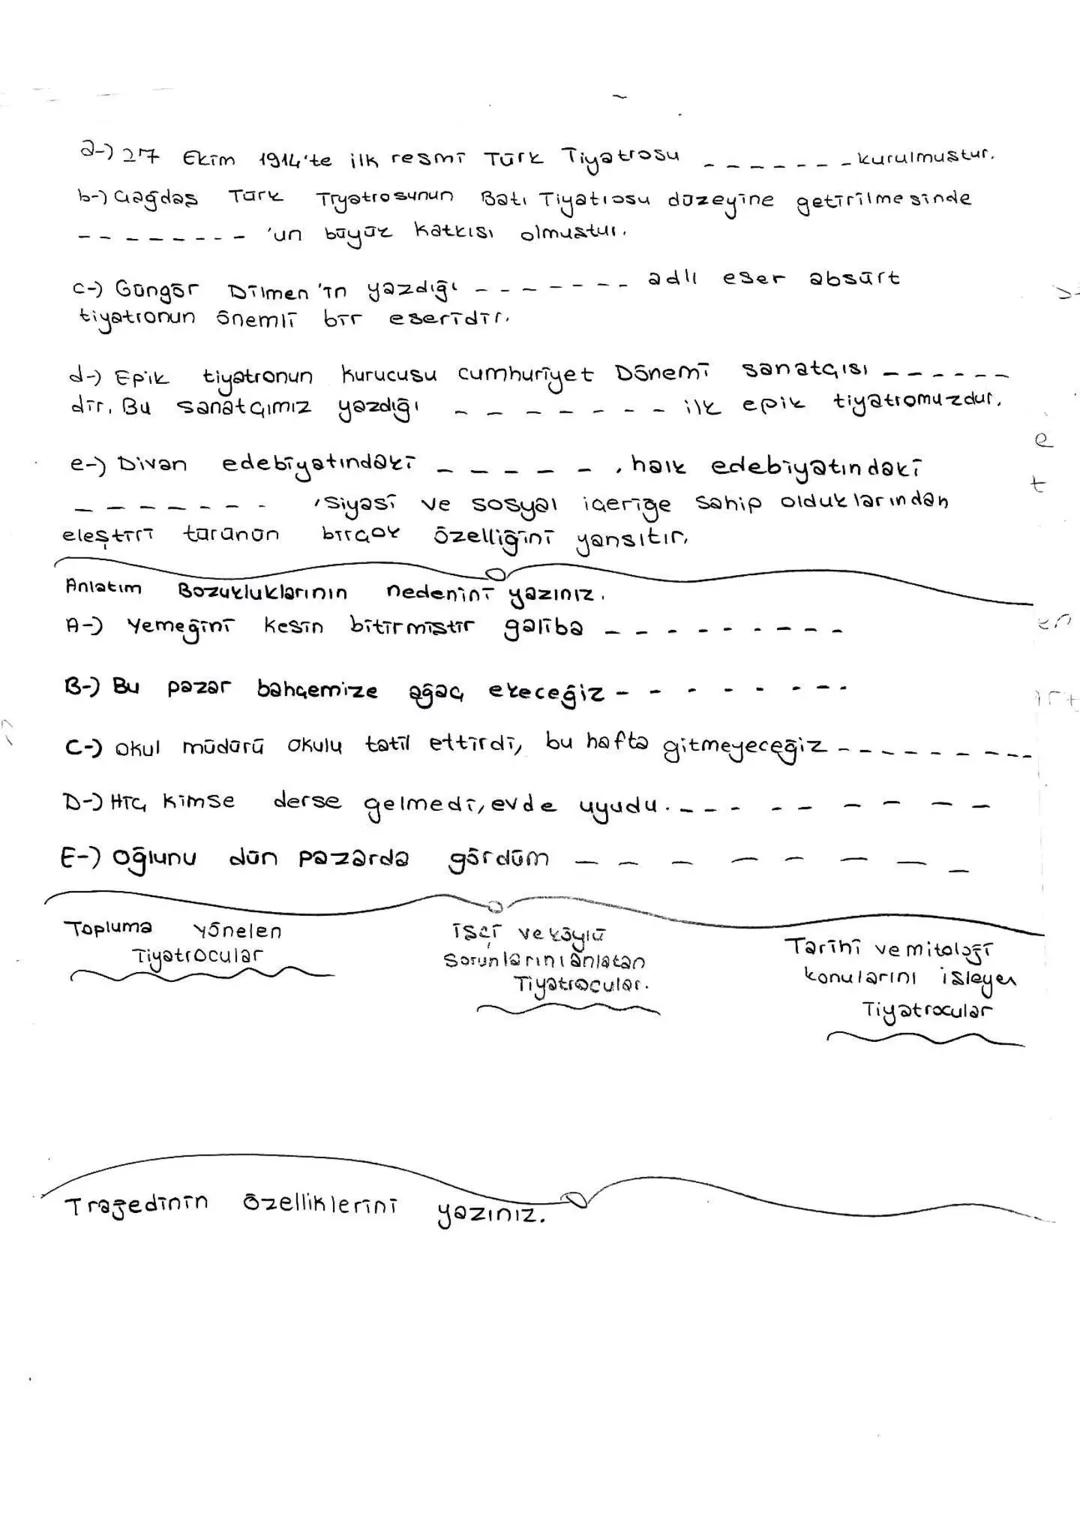 a-) 27 Ekim 1914'te ilk resmi Türk Tiyatrosu _ _ _ _ _ _ _ kurulmuştur.
b-) Çağdaş Türk Tiyatrosunun Batı Tiyatrosu düzeyine getirilmesinde
_ _ _ _ _ _ _ _ 'un büyük katkısı olmuştur.
c-) Güngör Dilmen'in yazdığı _ _ _ _ _ _ _ adlı eser absürt
tiyatronun önemli bir eseridir.
d-) Epik tiyatronun kurucusu cumhuriyet Dönemi sanatçısı _ _ _ _ _ _
dir. Bu sanatçımız yazdığı _ _ _ _ _ _ _ ilk epik tiyatromuzdur.
e-) Divan edebiyatındaki _ _ _ _ _ , halk edebiyatındaki
_ _ _ _ _ _ _ , siyasi ve sosyal içeriğe sahip olduklarından
eleştiri türünün birçok özelliğini yansıtır.
Anlatım Bozukluklarının nedenini yazınız.
A-) Yemeğini kesin bitirmiştir galiba _ _ _ _ _ _ _ _ _
B-) Bu pazar bahçemize ağaç ekeceğiz _ _ _ _ _ _ _ _ _
C-) Okul müdürü okulu tatil ettirdi, bu hafta gitmeyeceğiz _ _ _ _ _ _ _ _ _
D-) Hiç kimse derse gelmedi, evde uyudu. _ _ _ _ _ _ _ _ _
E-) Oğlunu dün pazarda gördüm _ _ _ _ _ _ _ _ _
Topluma Yönelen
Tiyatrocular
İşçi ve köylü
Sorunlarını anlatan
Tiyatrocular.
Tarihi ve mitoloji
konularını işleyen
Tiyatrocular
Trajedinin özelliklerini yazınız.